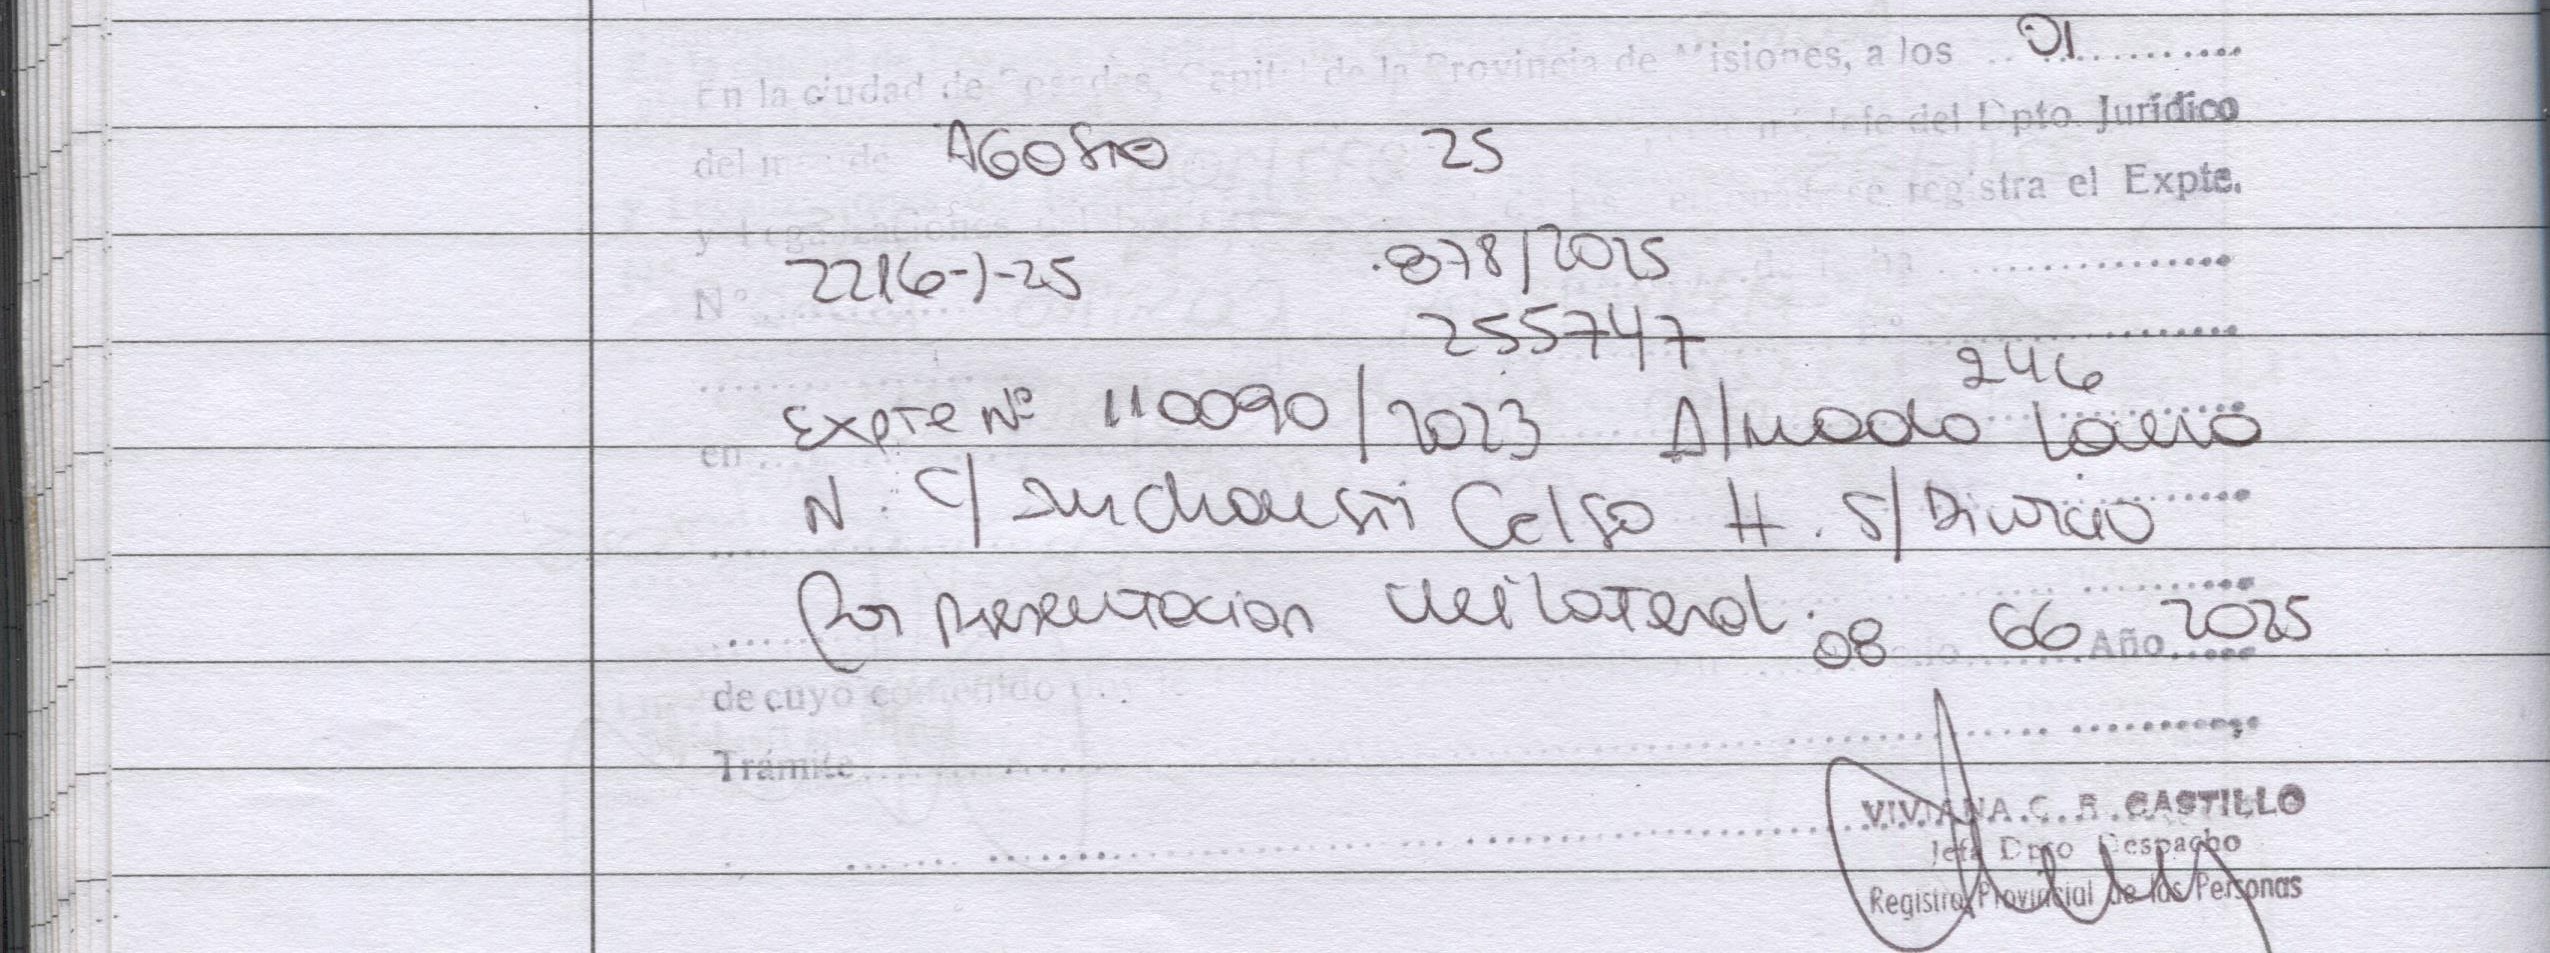 En la ciudad de Posadas, Capital de la Provincia de Misiones, a los 01
del mes de AGOSTO 25 Jefe del Dpto. Jurídico
y Legalizaciones registra el Expte.
N° 2216-J-25 878/2025 de fecha
255747
246
Expte Nº 110090/2023 Almada
en N. C/ Celso H. S/ Divorcio
Por presentacion unilateral. 08 66 Año 2025
de cuyo contenido
Trámite
VIVIANA C. R. CASTILLO
Jefa Dpto Despacho
Registro Provincial de las Personas